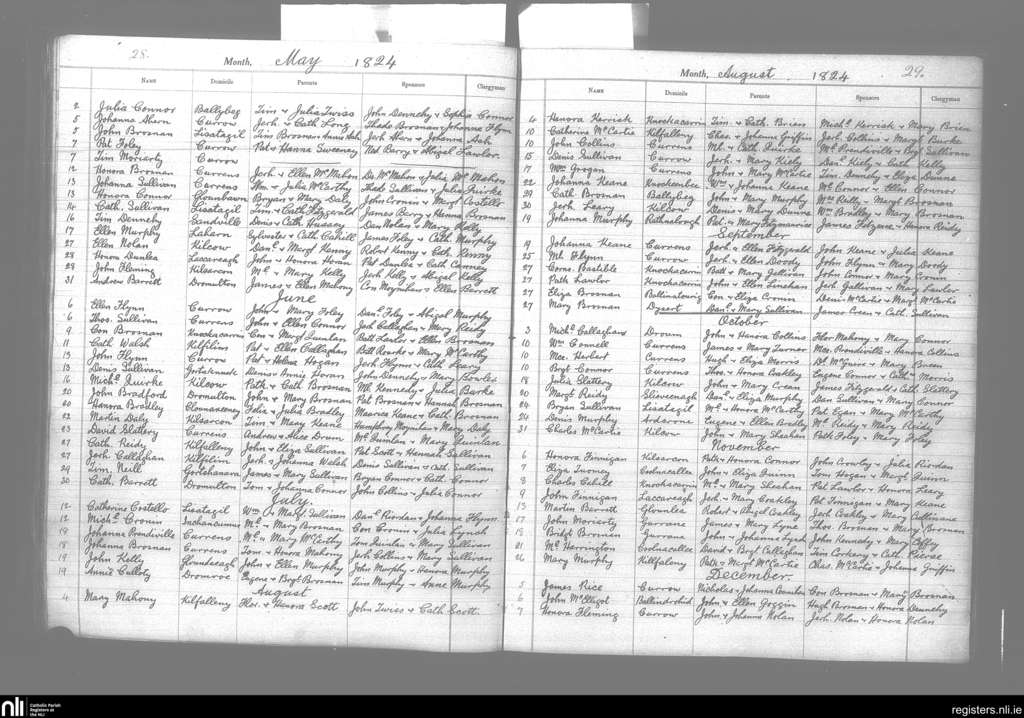 28.
Month, May 1824
NAME Domicile Parents Sponsors Clergyman
2 Julia Connor Ballybeg Tim & Julia Twiss John Dennehy & Sophia Connor
5 Johanna Ahern Currow Jerh & Cath Long Thade Brosnan & Johanna Flynn
5 John Brosnan Lisatagil Tim Brosnan & Anne Ash Jerh Ahern & Johanna Ash
7 Pat Foley Currow Pat & Hanna Sweeney Ned Barry & Abigal Lawlor.
7 Tim Moriarty Currow
12 Honora Brosnan Currens Jerh & Ellen McMahon Dr. McMahon & Julia McMahon
13 Johanna Sullivan Currens Wm & Julia McCarthy Thade Sullivan & Julia Quirke
13 Honora Connor Glounbawn Bryan & Mary Daly John Cronin & Margt Costello
14 Cath. Sullivan Lisatagil Tim & Cath Fitzgerald James Barry & Hanna Brosnan
16 Tim Dennehy Denis & Cath Hussey Dan Nolan & Mary Kelly
17 Ellen Murphy Laharn Sylvester & Cath Cahill James Foley & Cath Murphy
27 Ellen Nolan Kilcow Danl & Margt Kenny Robert Kenny & Cath Kenny
28 Honora Dunlea Laccareagh John & Honora Horan Pat Dunlea & Cath Canney
29 John Fleming Kilsarcon Ml & Mary Kelly Jerh Kelly & Abigal Kelly
31 Andrew Barrett Dromulton James & Ellen Mahony Con Moynihan & Ellen Barrett
June
6 Ellen Flynn Currow John & Mary Foley Danl Foley & Abigal Murphy
6 Thos. Sullivan Currens John & Ellen Connor Jerh Callaghan & Mary Reidy
9 Con Brosnan Knockacurrin Con & Margt Quinlan Batt Lawlor & Ellen Brosnan
11 Cath Walsh Kilfilins Pat & Ellen Callaghan Batt Rourke & Mary McCarthy
13 John Flynn Currow Pat & Helena Hogan Jerh Flynn & Cath Leary
13 Denis Sullivan Denis & Annie Horan John Dennehy & Mary Bowler
16 Michl Quirke Kilcow Patk & Cath Brosnan Ml Kennedy & Julia Burke
20 John Bradford Dromulton John & Mary Brosnan Pat Brosnan & Hannah Brosnan
20 Honora Bradley Clounaveeney Felix & Julia Bradley Maurice Keane & Cath Brosnan
22 Martin Daly Kilsarcon Tim & Mary Keane Humphry Moynihan & Mary Daly
23 David Slattery Currens Andrew & Alice Drum Ml Quinlan & Mary Quinlan
27 Cath. Reidy Kilfalleny John & Eliza Sullivan Pat Scott & Hannah Sullivan
27 Jerh. Callaghan Kilfilins Jerh. & Johanna Walsh Denis Sullivan & Cath Sullivan
29 Tim. Neill Gortshanavn James & Mary Sullivan Bryan Connor & Cath. Connor
30 Cath. Barrett Dromulton Tom & Johanna Connor John Collins & Julia Connor
July
12 Catherine Costello Lisatagil Wm & Margt Sullivan Danl Riordan & Johanna Flynn
12 Michl Cronin Inchancummer Ml & Mary Brosnan Con Cronin & Julia Lynch
19 Johanna Prendiville Currens Ml & Mary McCarthy Tom Quinlan & Mary Sullivan
18 Johanna Brosnan Currens Tom & Honora Mahony Jerh Collins & Mary Sullivan
19 John Kelly Glandaeagh John & Ellen Murphy John Murphy & Honora Murphy
19 Annie Culloty Dromroe Eugene & Brgt Brosnan Tim Murphy & Anne Murphy
August
4 Mary Mahony Kilfalleny Flor. & Honora Scott John Twiss & Cath Scott.
29.
Month, August 1824
NAME Domicile Parents Sponsors Clergyman
4 Honora Kerrisk Knockacurrin Tim & Cath. Brien Michl Kerrisk & Mary Brien
10 Catherine McCartie Kilfalleny Chas. & Johanna Griffin Jerh Collins & Margt Burke
10 John Collins Currens Ml & Cath Quirke Ml Prendiville & Brgt Sullivan
15 Denis Sullivan Currow Jerh. & Mary Kiely Danl Kiely & Cath Kelly
17 Wm Grogan Currens John & Mary McCartie Tim. Dennehy & Eliza Dunne
22 Johanna Keane Knockeenbee Wm & Johanna Keane Ml Connor & Ellen Connor
29 Cath Brosnan Ballybeg John & Mary Murphy Wm Reilly & Margt Brosnan
30 Jerh. Leary Kilbwee Denis & Mary Dunne Wm Bradley & Mary Brosnan
19 Johanna Murphy Rathnalough Pat. & Mary Fitzmaurice James Fitzgene & Honora Reidy
September
19 Johanna Keane Currens Jerh & Ellen Fitzgerald John Keane & Julia Keane
25 Ml Flynn Currow Jerh. & Ellen Doody John Flynn & Mary Doody
27 Corns. Bastible Knockacurrin Batt & Mary Galivan John Connor & Mary Cronin
27 Patk Lawlor Knockacurrin John & Ellen Linehan Jerh Gallivan & Mary Lawlor
27 Eliza Brosnan Ballinatourig Con & Eliza Cronin Denis McCartie & Margt McCartie
27 Mary Brosnan Dysert Danl & Mary Sullivan James Creen & Cath. Sullivan
October
3 Michl Callaghan Droum John & Honora Collins Flor Mahony & Mary Connor
10 Wm Connell Currens James & Mary Turner Mce. Prendiville & Honora Collins
10 Mce. Herbert Currens Hugh & Eliza Morris Dr McGuire & Mary Breen
10 Brgt Connor Currens Thos. & Honora Coakley Eugene Connor & Cath Morris
18 Julia Slattery Kilcow John & Mary Crean James Fitzgerald & Cath Slattery
20 Margt Reidy Slievenagh Danl & Eliza Murphy Dan Sullivan & Mary Connor
24 Bryan Sullivan Lisatagil Ml & Honora McCarthy Pat Egan & Mary McCarthy
24 Denis Murphy Ardarone Eugene & Ellen Bradley Ml Reidy & Mary Reidy
31 Charles McCartie Kilcow John & Mary Sheahan Patk Foley & Mary Foley
November
6 Honora Finnigan Kilsarcon Patk & Honora Connor John Crowley & Julia Riordan
7 Eliza Twomey Codnacullee John & Eliza Quinn Tom Hogan & Margt Quinn
8 Charles Cahill Knockacurrin Ml & Mary Sheahan Pat Lawlor & Honora Leary
9 John Finnigan Laccareagh Jerh. & Mary Coakley Pat Finnigan & Mary Keane
13 Martin Barrett Glounlea Robert & Abigal Oakley Jerh Coakley & Mary Cullinane
17 John Moriarty Gurrane James & Mary Lyne Thos. Brosnan & Margt Brosnan
19 Bridgt Brosnan Gurrane John & Johanna Lynch John Kennedy & Mary Coffey
21 Ml Harrington Codnacullee David & Brgt Callaghan Tim Corkery & Cath. Pierse
26 Mary Murphy Killfaloney Patk & Margt McCartie Chas. McCartie & Johanna Griffin
December.
5 James Rice Currow Nicholas & Johanna Counihan Con Brosnan & Margt Brosnan
6 John McElligot Ballinderhid John & Ellen Goggin Hugh Brosnan & Honora Dennehy
7 Honora Fleming Currow John & Johanna Nolan Jerh. Nolan & Honora Nolan
nli Catholic Parish Registers at the NLI
registers.nli.ie